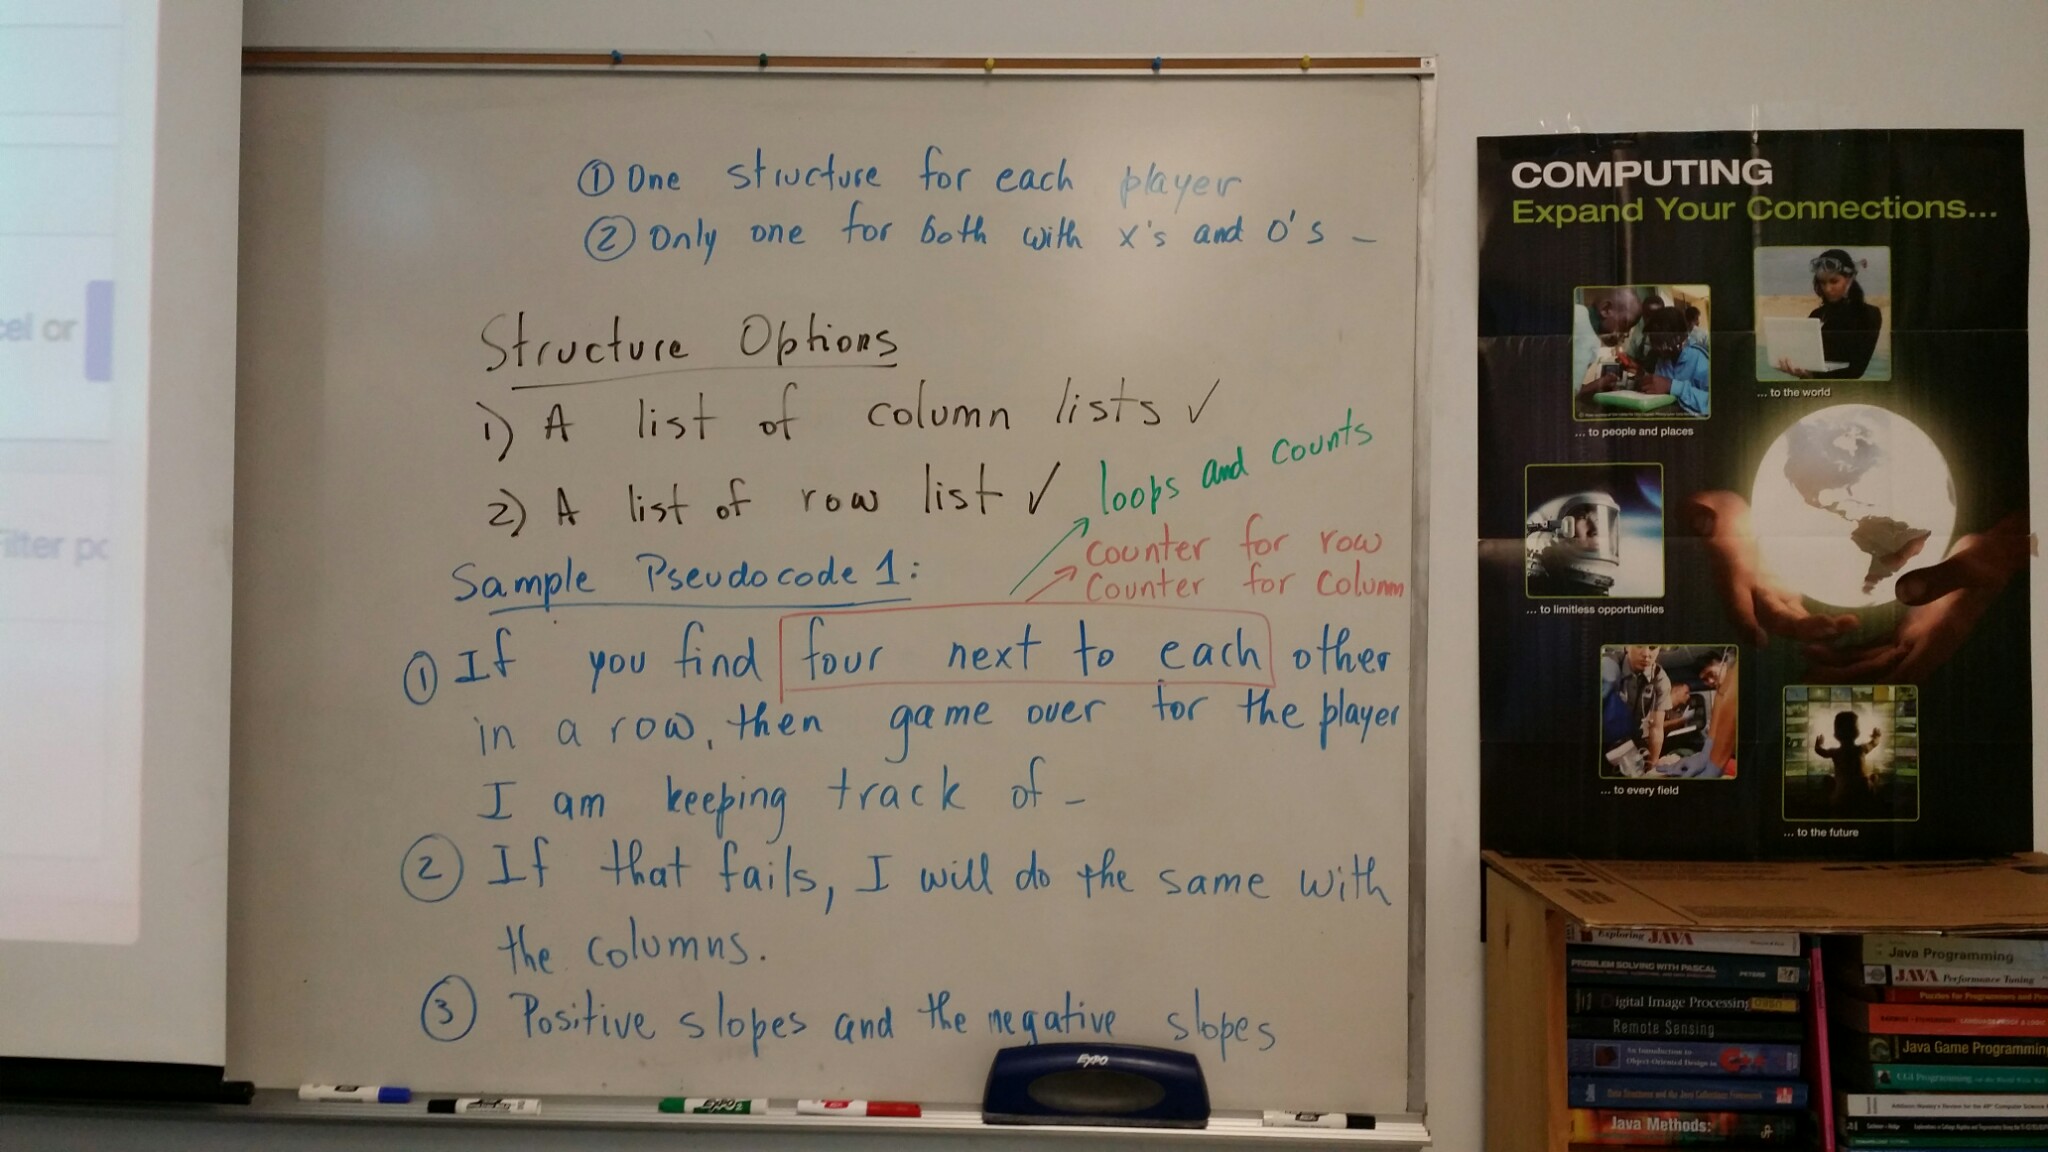 ① One structure for each player
② Only one for both with x's and o's -
Structure Options
1) A list of column lists ✓
2) A list of row list ✓
loops and counts
counter for row
Counter for column
Sample Pseudocode 1:
① If you find four next to each other
in a row, then game over for the player
I am keeping track of -
② If that fails, I will do the same with
the columns.
③ Positive slopes and the negative slopes
EXPO
EXPO
cel or
Filter po
COMPUTING
Expand Your Connections...
... to the world
... to people and places
... to limitless opportunities
... to every field
... to the future
Exploring JAVA
PROBLEM SOLVING WITH PASCAL
Digital Image Processing
Remote Sensing
An Introduction to
Object-Oriented Design in
Data Structures and the Java Collections Framework
Java Methods:
Java Programming
JAVA Performance Tuning
Puzzles for Programmers and
Java Game Programming
CGI Programming on the World Wide